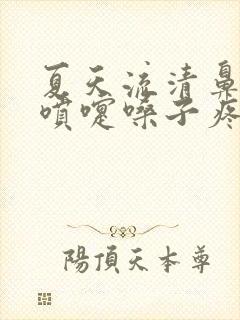 夏天流清鼻
噴嚏嗓子疼
陽頂天本尊